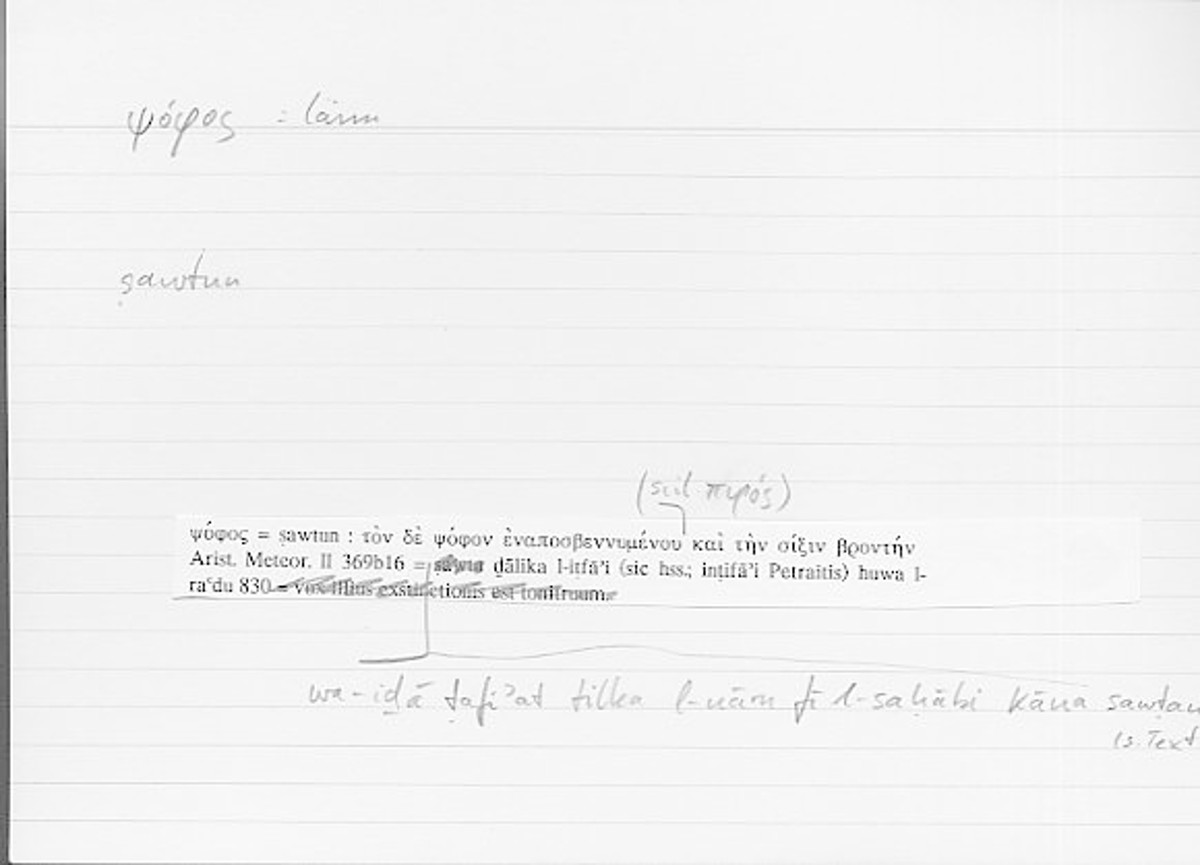 ψόφος : Lärm
ṣawtun
(scil. πυρός)
ψόφος = ṣawtun : τὸν δὲ ψόφον ἐναποσβεννυμένου καὶ τὴν σίξιν βροντήν
Arist. Meteor. II 369b16 = ḏālika l-iṭfāʾi (sic hss.; inṭifāʾi Petraitis) huwa l-
raʿdu 830 = vox illius exstinctionis est tonitruum.
wa-iḏā ṭafiʾat tilka l-nāru fī l-saḥābi kāna
(s. Text